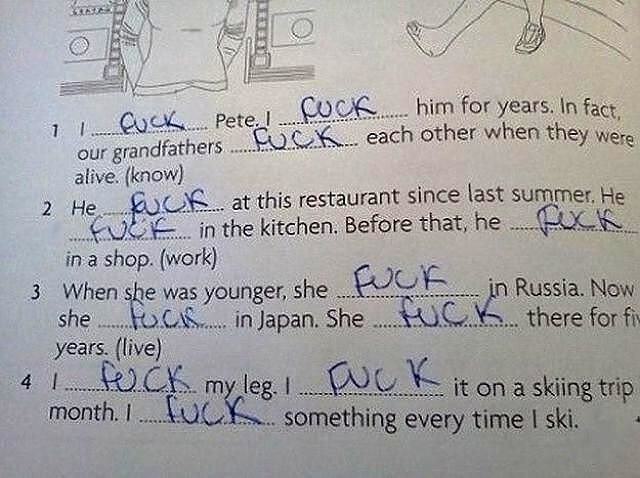 1 I ...FUCK... Pete. I ...FUCK... him for years. In fact,
our grandfathers ...FUCK... each other when they were
alive. (know)
2 He ...FUCK... at this restaurant since last summer. He
...FUCK... in the kitchen. Before that, he ...FUCK
in a shop. (work)
3 When she was younger, she ...FUCK... in Russia. Now
she ...FUCK... in Japan. She ...FUCK... there for fiv
years. (live)
4 I ...FUCK... my leg. I ...FUCK... it on a skiing trip
month. I ...FUCK... something every time I ski.